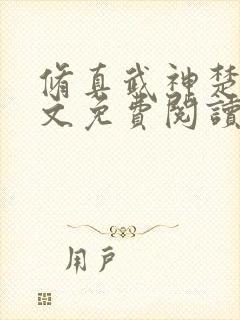 脩真武神楚
文免費閱讀
用戶